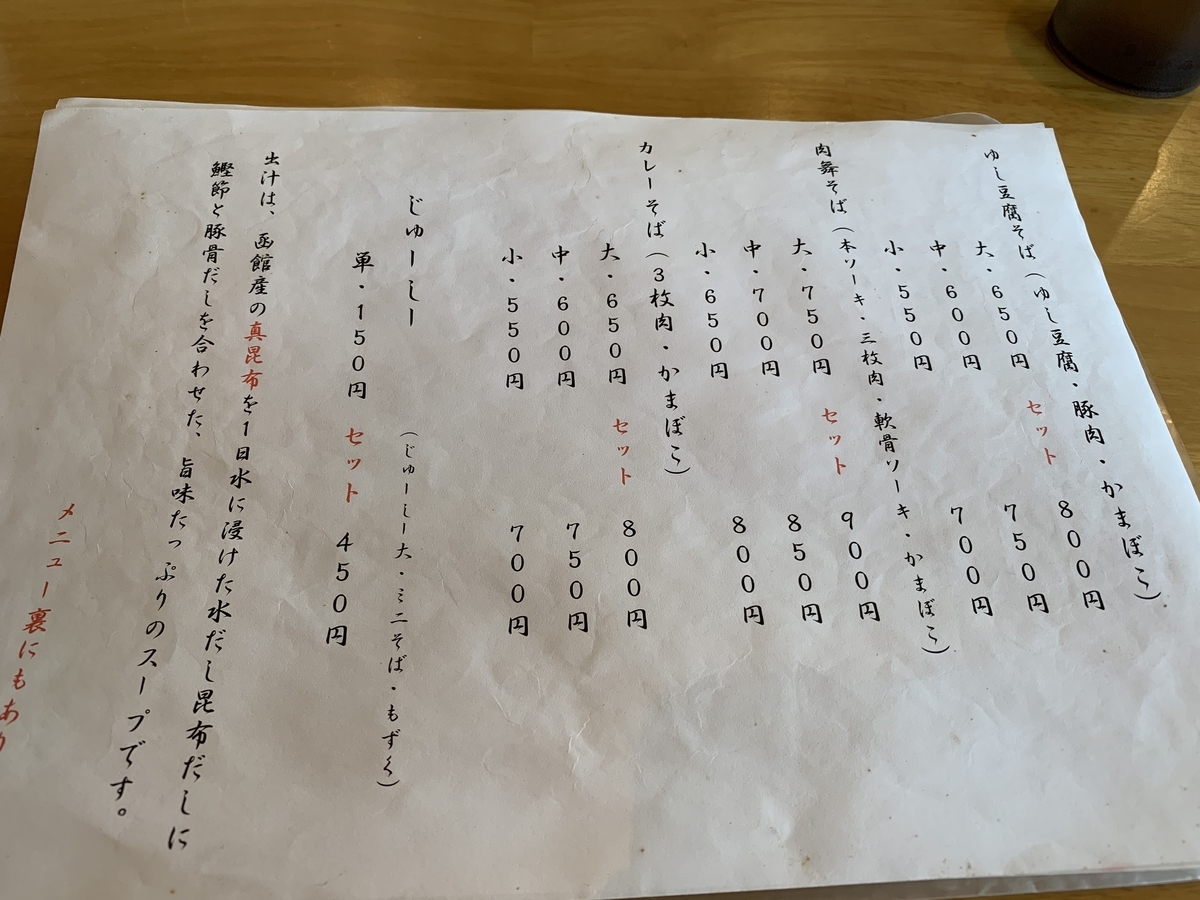 ゆし豆腐そば（ゆし豆腐・豚肉・かまぼこ）
大・650円 セット 800円
中・600円 750円
小・550円 700円
肉舞そば（本ソーキ・三枚肉・軟骨ソーキ・かまぼこ）
大・750円 セット 900円
中・700円 850円
小・650円 800円
カレーそば（3枚肉・かまぼこ）
大・650円 セット 800円
中・600円 750円
小・550円 700円
じゅーしー
（じゅーしー大・ミニそば・もずく）
単・150円 セット 450円
出汁は、函館産の真昆布を1日水に浸けた水だし昆布だしに
鰹節と豚骨だしを合わせた、旨味たっぷりのスープです。
メニュー裏にもあり